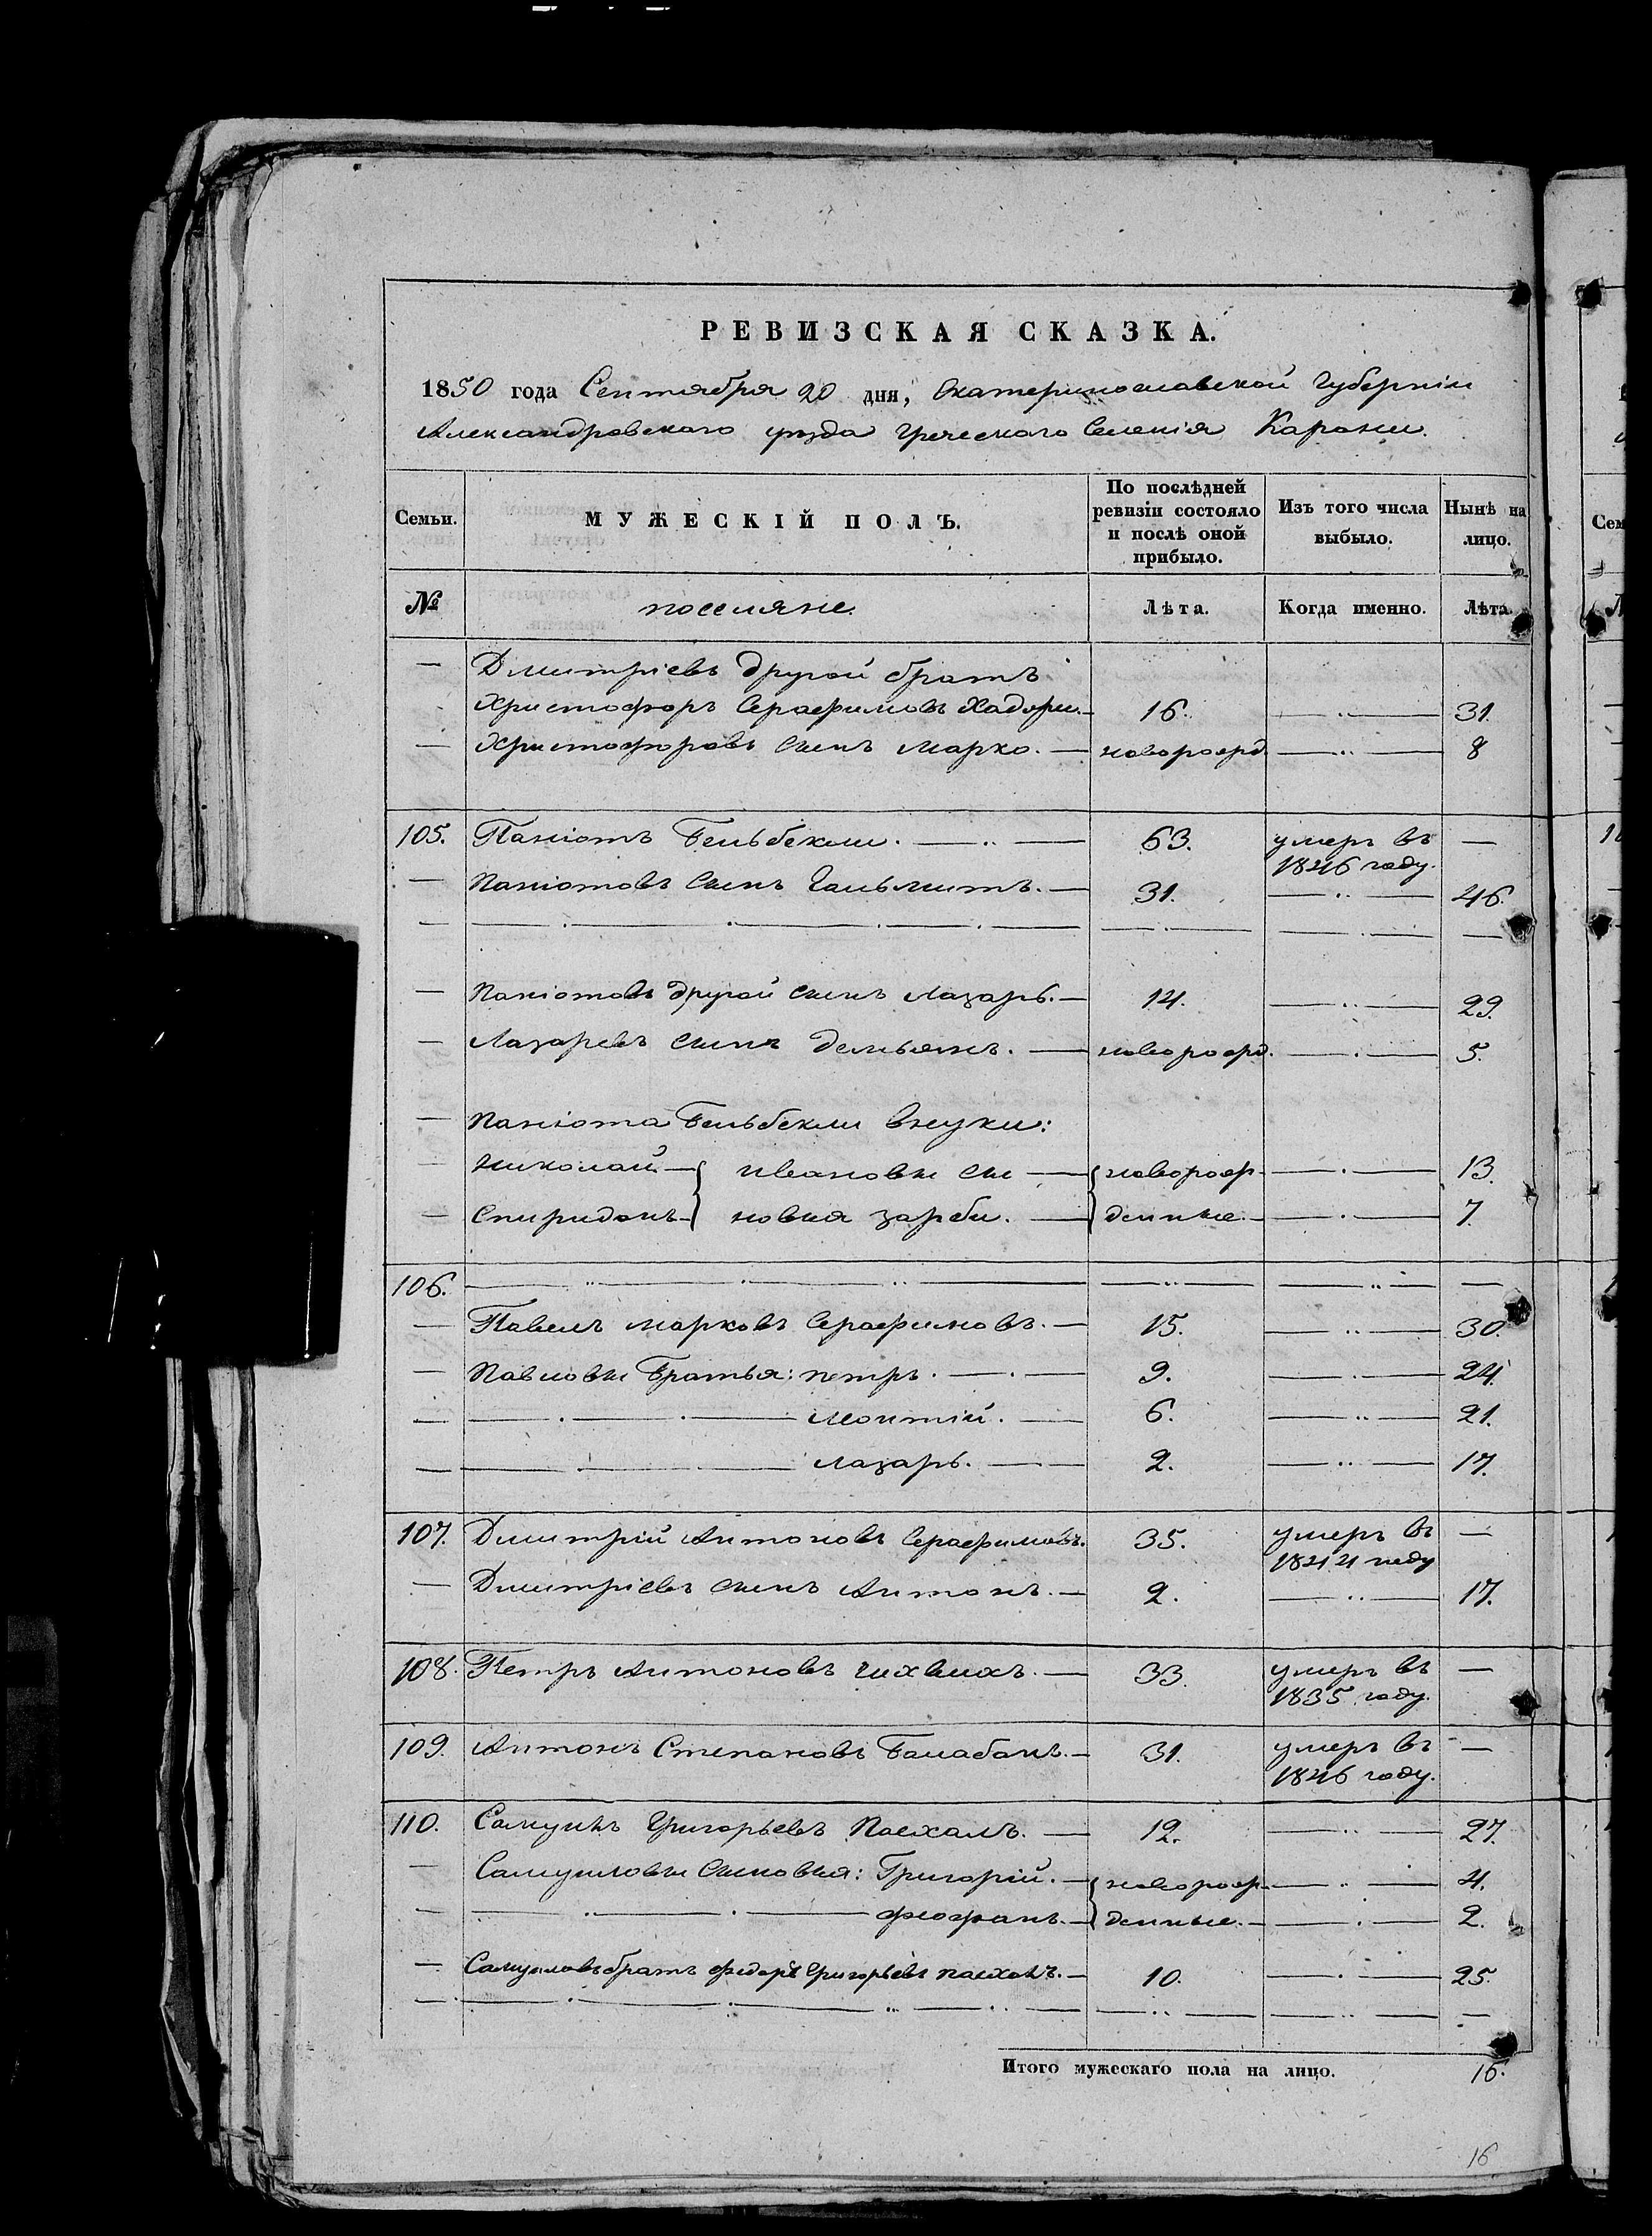 РЕВИЗСКАЯ СКАЗКА.
1850 года Сентября 20 дня, Екатеринославской Губернiи
Александровскаго уѣзда Греческаго Селенiя Карани.
Семьи. МУЖЕСКIЙ ПОЛЪ. По послѣдней ревизiи состояло и послѣ оной прибыло. Изъ того числа выбыло. Нынѣ на лицо.
№ поселяне. Лѣта. Когда именно. Лѣта.
— Дмитрiевъ другой братъ
Христофоръ Серафимовъ Хаджи. — 16. — 31.
— Христофоровъ сынъ Марко. — новорожд. — 8
105. Панiотъ Бельбекли. — 63. умеръ въ 1846 году. —
— Панiотовъ сынъ — 31. — 46.
— Панiотовъ другой сынъ Лазарь. — 14. — 29.
— Лазаревъ сынъ Демьянъ. — новорожд. — 5.
— Панiота Бельбекли внуки:
— Николай — } Ивановы сы — { новорож- — 13.
— Спиридонъ — } новья Зарби. — { денные. — 7.
106. — — — —
— Павелъ Марковъ Серафимовъ. — 15. — 30.
— Павловы Братья: Петръ. — 9. — 24.
— — Леонтiй. — 6. — 21.
— — Лазарь. — 2. — 17.
107. Дмитрiй Антоновъ Серафимовъ. 35. умеръ въ 1844 году —
— Дмитрiевъ сынъ Антонъ. — 2. — 17.
108. Петръ Антоновъ — 33. умеръ въ 1835 году. —
109. Антонъ Степановъ Балабанъ. — 31. умеръ въ 1846 году. —
110. Самуилъ Григорьевъ Пасхалъ. — 12. — 27.
— Самуиловы Сыновья: Григорiй. — { новорож- — 4.
— — Феофанъ. — { денные. — 2.
— Самуиловъ братъ Федоръ Григорьевъ Пасхалъ. — 10. — 25.
— — — — —
Итого мужескаго пола на лицо. 16.
16